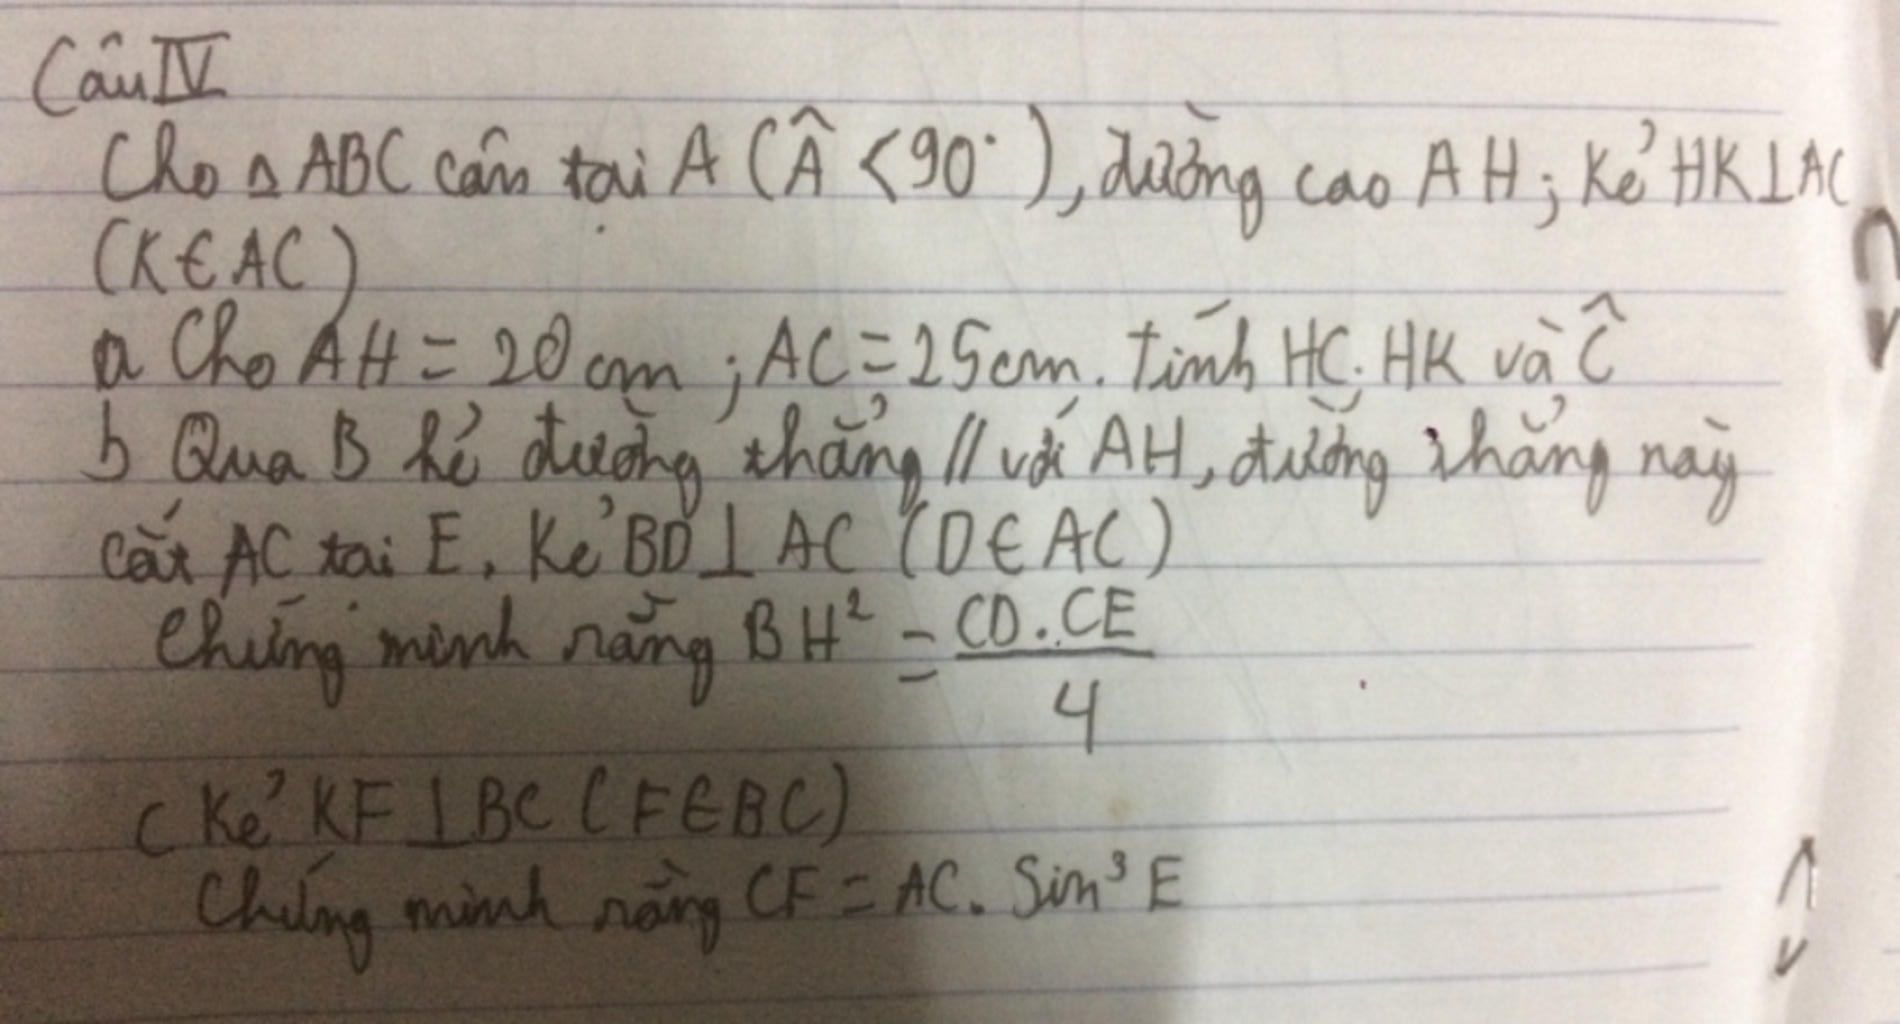 Câu IV
Cho △ ABC cân tại A (Â < 90°), đường cao AH; Kẻ HK⊥AC
(K∈AC)
a Cho AH = 20 cm; AC = 25cm. tính HC. HK và Ĉ
b Qua B kẻ đường thẳng // với AH, đường thẳng này
cắt AC tại E. Kẻ BD ⊥ AC (D∈AC)
Chứng minh rằng BH² = CD.CE / 4
c Kẻ KF⊥BC (F∈BC)
Chứng minh rằng CF = AC. Sin³E